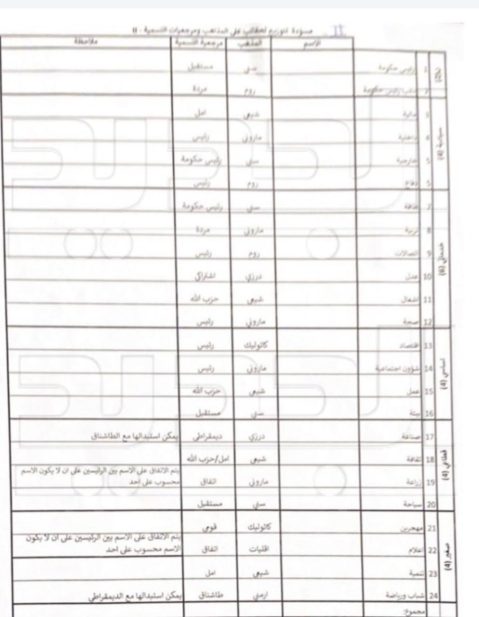 مسودة توزيع الحقائب على المذهب ومرجعيات التسمية - II
الاسم المذهب مرجعية التسمية ملاحظة
1 رئيس حكومة سني مستقبل
نائب رئيس حكومة روم مردة
سيادية (4)
3 مالية شيعي امل
4 داخلية ماروني رئيس
5 خارجية سني رئيس حكومة
دفاع روم رئيس
خدماتي (6)
7 طاقة سني رئيس حكومة
8 تربية ماروني مردة
9 اتصالات روم رئيس
10 عدل درزي اشتراكي
11 اشغال شيعي حزب الله
12 صحة ماروني رئيس
اساسي (4)
13 اقتصاد كاثوليك رئيس
14 شؤون اجتماعية ماروني رئيس
15 عمل شيعي حزب الله
16 بيئة سني مستقبل
قطاعي (4)
17 صناعة درزي ديمقراطي يمكن استبدالها مع الطاشناق
18 ثقافة شيعي امل/حزب الله
19 زراعة ماروني اتفاق يتم الاتفاق على الاسم بين الرئيسين على ان لا يكون الاسم
محسوب على احد
20 سياحة سني مستقبل
صغير (4)
21 مهجرين كاثوليك قومي
22 اعلام اقليات اتفاق يتم الاتفاق على الاسم بين الرئيسين على ان لا يكون
الاسم محسوب على احد
23 تنمية شيعي امل
24 شباب ورياضة ارمني طاشناق يمكن استبدالها مع الديمقراطي
مجموع: